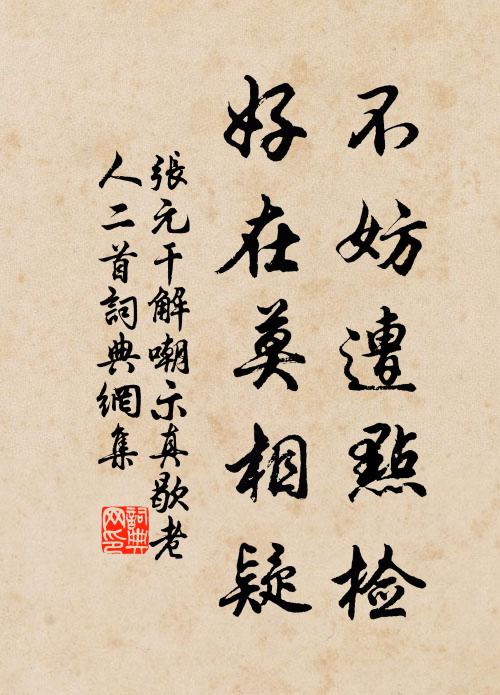 不妨遭點检
好在莫相疑
張元干解嘲示真歇老
人二首詞典網集
詞典网印